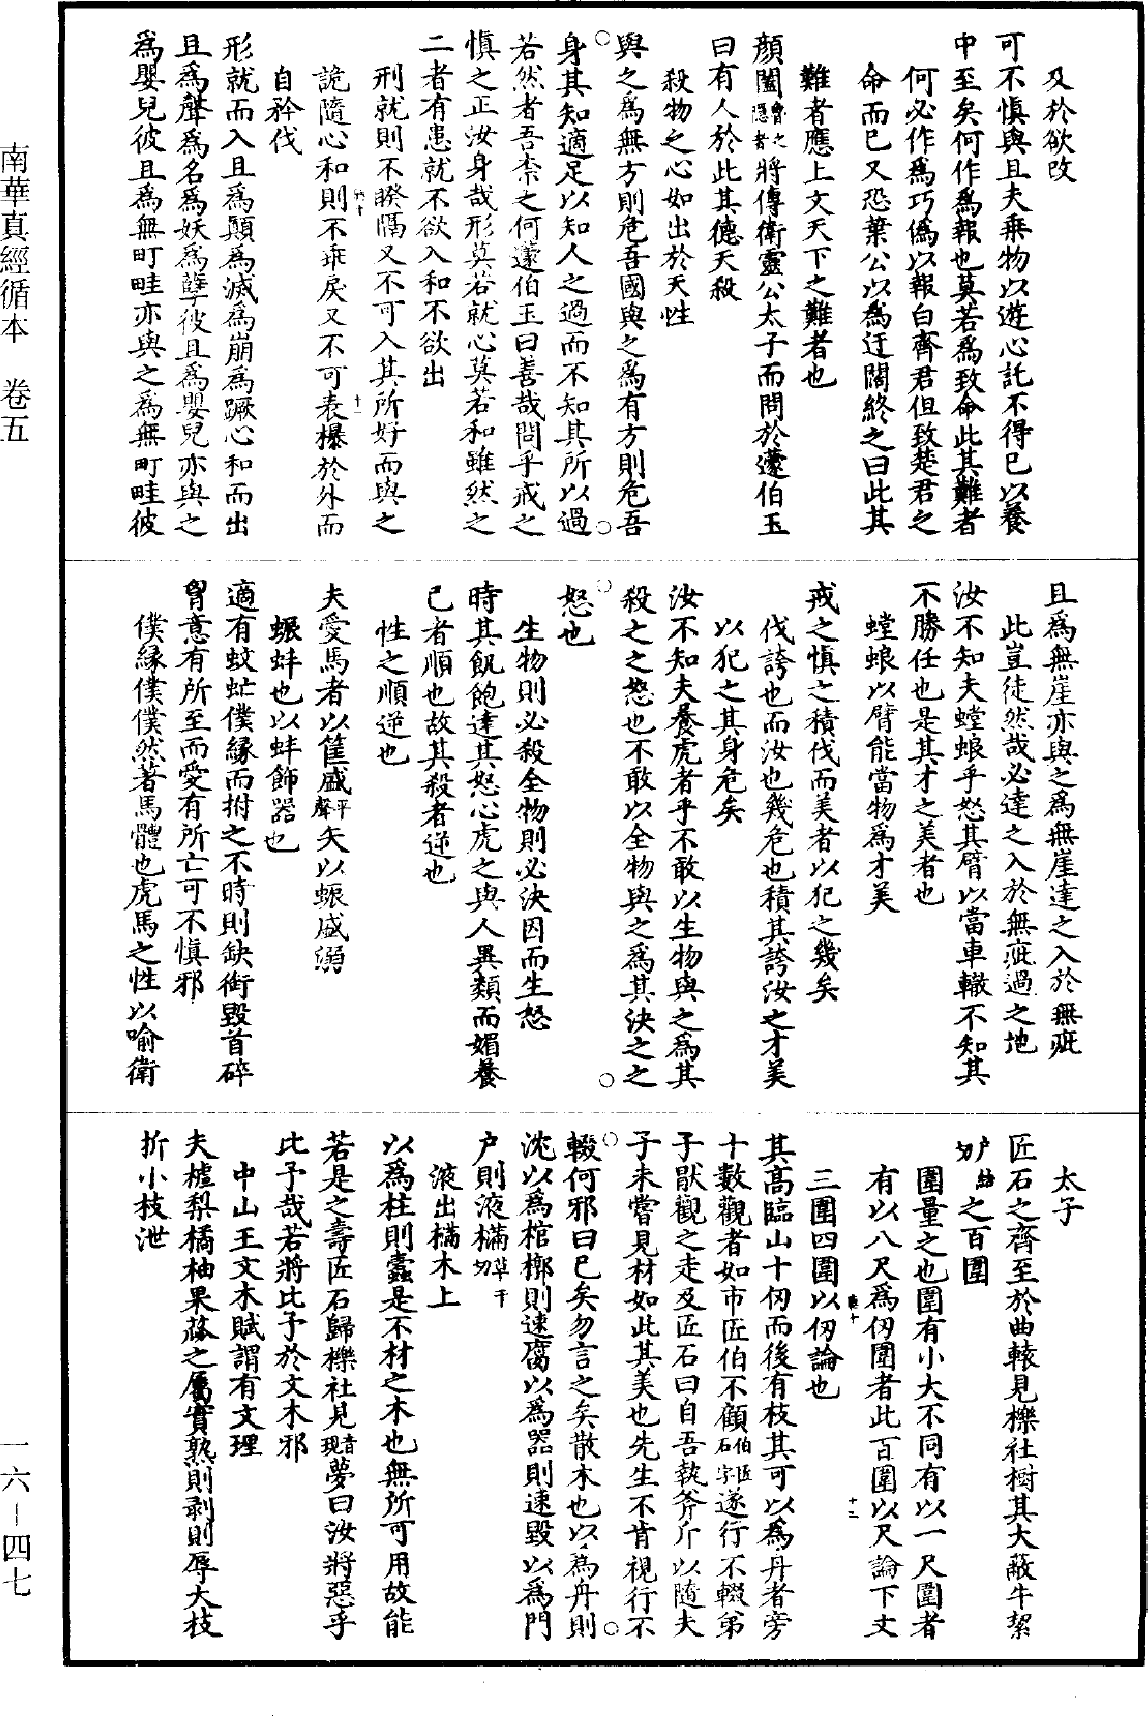 南華真經循本　卷五
一六－四七
及於欲改
可不慎與且夫乗物以遊心託不得已以養
中至矣何作為報也莫若為致命此其難者
何必作為巧偽以報白齊君但致楚君之
命而已又恐葉公以為迂闊終之曰此其
難者應上文天下之難者也
顔闔魯之隱者將傅衛靈公太子而問於蘧伯玉
曰有人於此其德天殺
殺物之心如出於天性
與之為無方則危吾國與之為有方則危吾
身其知適足以知人之過而不知其所以過
若然者吾柰之何蘧伯玉曰善哉問乎戒之
慎之正汝身哉形莫若就心莫若和雖然之
二者有患就不欲入和不欲出
刑就則不睽隔又不可入其所好而與之
詭隨心和則不乖戾又不可表櫐於外而
自矜伐
形就而入且為顛為滅為崩為蹶心和而出
且為聲為名為妖為孽彼且為嬰兒亦與之
為嬰兒彼且為無町畦亦與之為無町畦彼
且為無崖亦與之為無崖達之入於無疵
此豈徒然哉必達之入於無疵過之地
汝不知夫螳蜋乎怒其臂以當車轍不知其
不勝任也是其才之美者也
螳蜋以臂能當物為才美
戒之慎之積伐而美者以犯之幾矣
伐誇也而汝也幾危也積其誇汝之才美
以犯之其身危矣
汝不知夫養虎者乎不敢以生物與之為其
殺之之怒也不敢以全物與之為其決之之
怒也
生物則必殺全物則必決因而生怒
時其飢飽達其怒心虎之與人異類而媚養
己者順也故其殺者逆也
性之順逆也
夫愛馬者以筐盛平聲矢以蜄盛溺
蜄蚌也以蚌飾器也
適有蚊虻僕縁而拊之不時則缺銜毀首碎
胷意有所至而愛有所亡可不慎邪
僕縁僕僕然著馬體也虎馬之性以喻衛
太子
匠石之齊至於曲轅見櫟社樹其大蔽牛絜
户結切之百圍
圍量之也圍有小大不同有以一尺圍者
有以八尺為仞圍者此百圍以尺論下文
三圍四圍以仞論也
其髙臨山十仞而後有枝其可以為舟者旁
十數觀者如市匠伯不顧伯匠石字遂行不輟弟
子厭觀之走及匠石曰自吾執斧斤以隨夫
子未嘗見材如此其美也先生不肯視行不
輟何邪曰已矣勿言之矣散木也以為舟則
沈以為棺槨則速腐以為器則速毀以為門
户則液樠草干切
液出樠木上
以為柱則蠹是不材之木也無所可用故能
若是之壽匠石歸櫟社見音現夢曰汝將惡乎
比予哉若將比予於文木邪
中山王文木賦謂有文理
夫樝梨橘柚果蓏之屬實熟則剥則辱大枝
折小枝泄